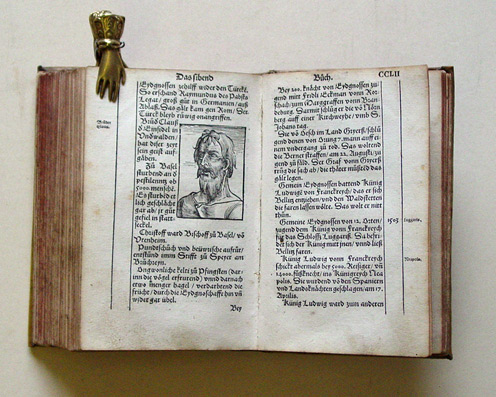 Das sibend
Eydgnossen zehilff wider den Türckē.
So erschand Raymundus des Papsts
Legat / groß gůt in Germanien / auß
Ablaß. Das gält kam gen Rom / Der
Türck bleyb růwig vnangriffen.
Brůder
Clauß.
Brůd Clauß
ð Einsidel in
Vndwaldē /
hat diser zeyt
sein geist auf-
gäben.
Zů Basel
sturbend an ð
pestilentz ob
5000. menschē.
Es sturbēd er
lich geschlächt
gar ab / er gůt
gefel in statt-
seckel.
Christoff ward Bischoff zů Basel / vō
Vtenheim.
Pundtschůch vnd beüwrische aufrůr /
entstůnd imm Stifft zů Speyer am
Brüchreyn.
vngwonliche kelti zů Pfingsten / dar-
inn die vögel erfrurend / vnnd darnach
etwo menger hagel / verdarbtend die
frücht / durch die Eydgnoschafft hin vň
wider gar übel.
Bey
Bůch. CCLII
Bey 200. knächt von Eydgnossen zu-
gend mit Fridli Eckman vonn Ror-
schach / zum Marggraffen vonn Bran-
deburg. Darmit schlůg er die vō Nörn
berg auff einer Kirchweyhe / vmb S.
Johans tag.
Die vō Hesch im Land Gyerß / schlů
gend denen von Brung 7. mann auff ei
nem vndergang zů tod. Das woltend
die Berner straffen / am 21. Augusti / zu-
gend zů fäld. Der Graf vonn Gyerß
růg die sach ab / die thäter můßtend das
gält legen.
Gemein Eydgnossen battend Künig
Ludwigē von Franckreych / das er sich
Bellitz entzyhen / vnd den Waldstetten
die faren lassen wölte. Das wolt er nitt
thůn.
Gemeine Eydgnossen von 12. Orten /
zugend dem Künig vonn Franckreych
für das Schlossz Luggariß. Da befri
det sich der Künig mit jnen / vnnd ließ
Bellitz faren.
1503
Luggariß.
Künig Ludwig vonn Franckreych
schickt abermals bey 5000. Reisiger / vň
14000. fůßknecht / ins Künigreych Nea
polis. Die wurdend vō den Spaniern
vnd Landsknächten geschlagen / am 17.
Aprilis.
Neapolis.
Künig Ludwig ward zum anderen